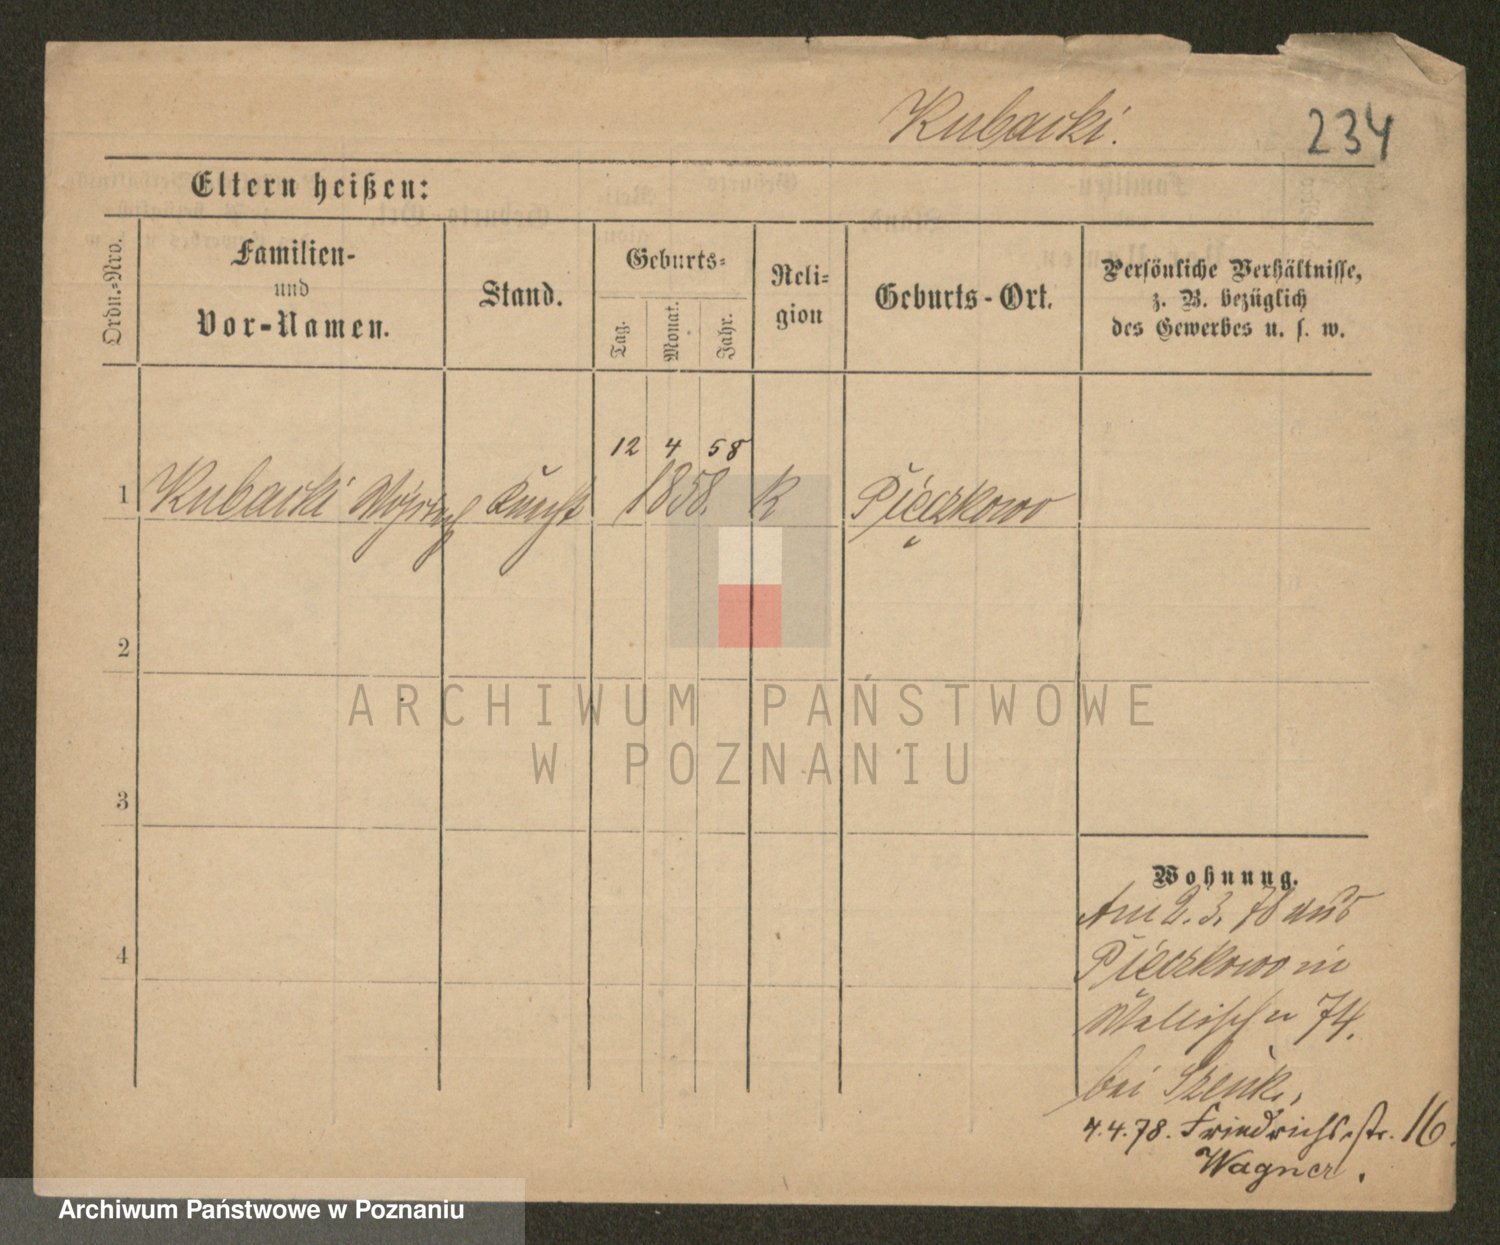 Kubacki.
234
Eltern heißen:
Ordn.-Nro.
Familien-
und
Vor-Namen.
Stand.
Geburts-
Tag.
Monat.
Jahr.
Reli-
gion
Geburts-Ort.
Persönliche Verhältnisse,
z. B. bezüglich
des Gewerbes u. s. w.
12 4 58
1 Kubacki Knecht 1858. K Pieczkowo
2
3
4
ARCHIWUM PAŃSTWOWE
W POZNANIU
Wohnung.
Am 2. 3. 78 aus
Pieczkowo in
Wallischei 74.
bei
4.4.78. Friedrichsstr. 16.
Wagner.
Archiwum Państwowe w Poznaniu